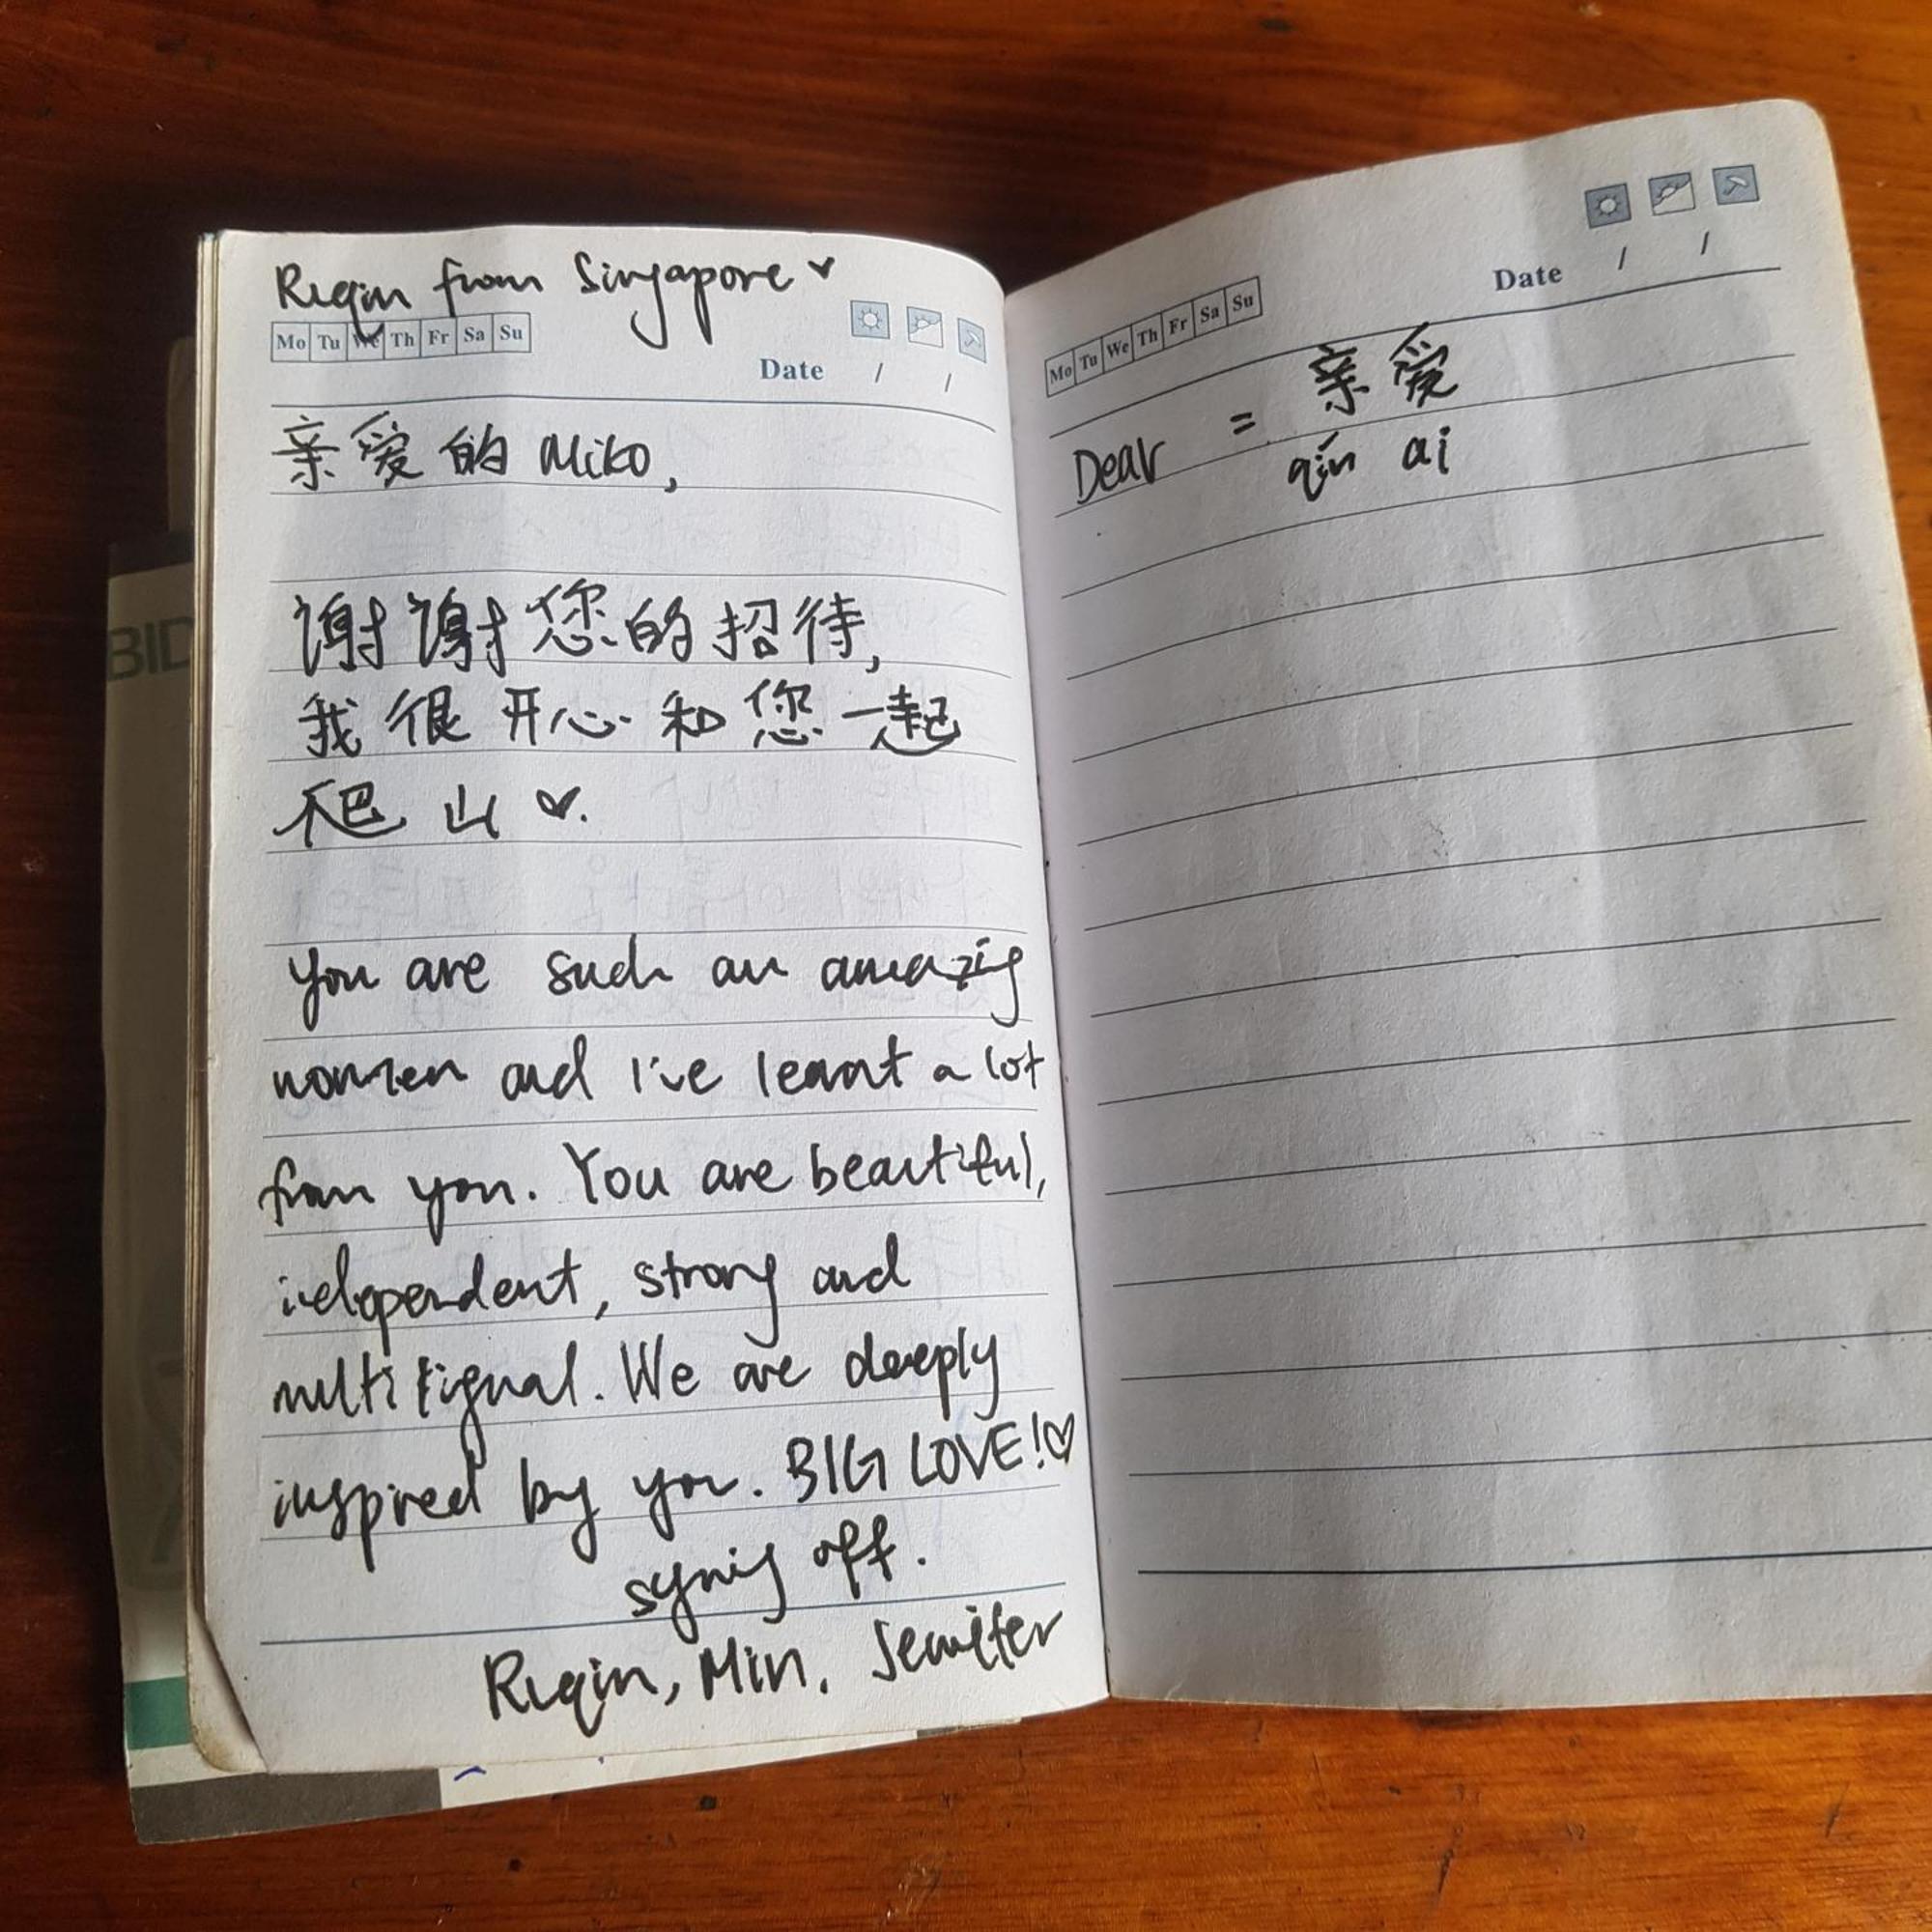 Ruqin from Singapore
Mo Tu We Th Fr Sa Su
Date / /
亲爱的 Miko,
谢谢您的招待,
我很开心和您一起
爬山 ♥.
you are such an amazing
women and I've learnt a lot
from you. You are beautiful,
independent, strong and
multilignal. We are deeply
inspired by you. BIG LOVE!♡
signing off.
Ruqin, Min, Jennifer
Mo Tu We Th Fr Sa Su
Date / /
Dear = 亲爱
qín ai
BID